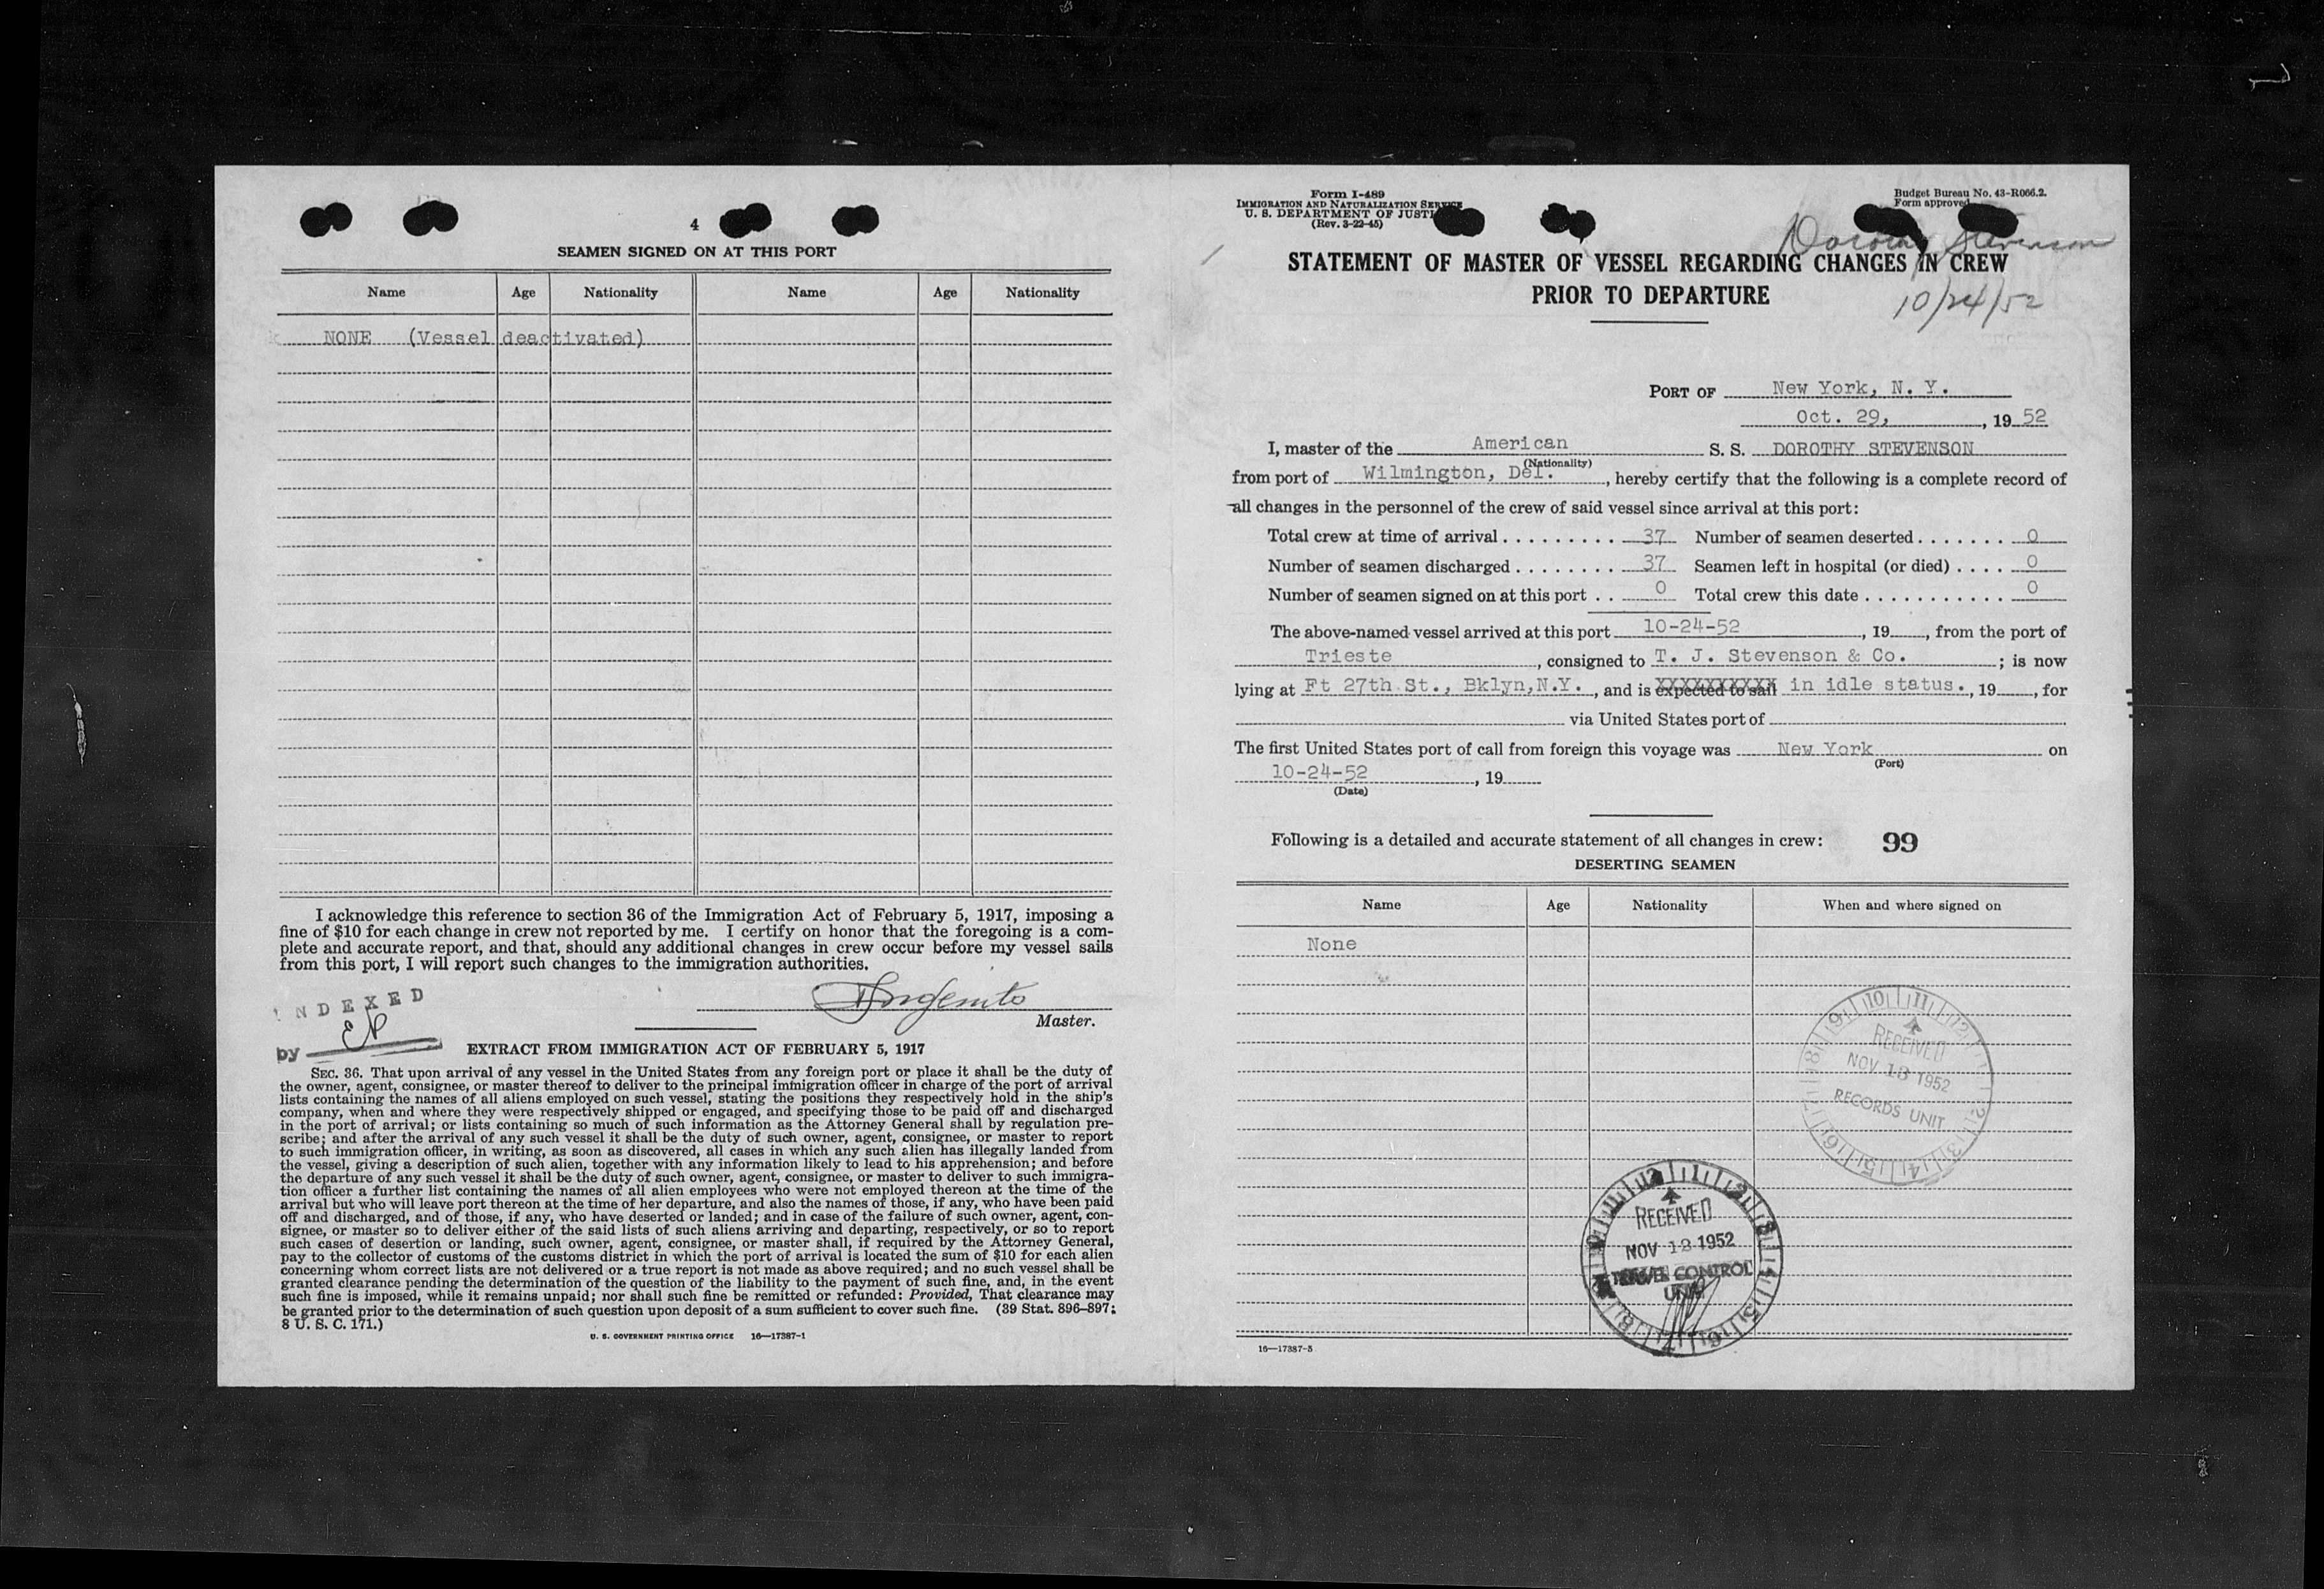 4
SEAMEN SIGNED ON AT THIS PORT
Name Age Nationality Name Age Nationality
NONE (Vessel deactivated)
I acknowledge this reference to section 36 of the Immigration Act of February 5, 1917, imposing a
fine of $10 for each change in crew not reported by me. I certify on honor that the foregoing is a com-
plete and accurate report, and that, should any additional changes in crew occur before my vessel sails
from this port, I will report such changes to the immigration authorities.
INDEXED
by
Master.
EXTRACT FROM IMMIGRATION ACT OF FEBRUARY 5, 1917
SEC. 36. That upon arrival of any vessel in the United States from any foreign port or place it shall be the duty of
the owner, agent, consignee, or master thereof to deliver to the principal immigration officer in charge of the port of arrival
lists containing the names of all aliens employed on such vessel, stating the positions they respectively hold in the ship's
company, when and where they were respectively shipped or engaged, and specifying those to be paid off and discharged
in the port of arrival; or lists containing so much of such information as the Attorney General shall by regulation pre-
scribe; and after the arrival of any such vessel it shall be the duty of such owner, agent, consignee, or master to report
to such immigration officer, in writing, as soon as discovered, all cases in which any such alien has illegally landed from
the vessel, giving a description of such alien, together with any information likely to lead to his apprehension; and before
the departure of any such vessel it shall be the duty of such owner, agent, consignee, or master to deliver to such immigra-
tion officer a further list containing the names of all alien employees who were not employed thereon at the time of the
arrival but who will leave port thereon at the time of her departure, and also the names of those, if any, who have been paid
off and discharged, and of those, if any, who have deserted or landed; and in case of the failure of such owner, agent, con-
signee, or master so to deliver either of the said lists of such aliens arriving and departing, respectively, or so to report
such cases of desertion or landing, such owner, agent, consignee, or master shall, if required by the Attorney General,
pay to the collector of customs of the customs district in which the port of arrival is located the sum of $10 for each alien
concerning whom correct lists are not delivered or a true report is not made as above required; and no such vessel shall be
granted clearance pending the determination of the question of the liability to the payment of such fine, and, in the event
such fine is imposed, while it remains unpaid; nor shall such fine be remitted or refunded: Provided, That clearance may
be granted prior to the determination of such question upon deposit of a sum sufficient to cover such fine. (39 Stat. 896–897;
8 U. S. C. 171.)
U. S. GOVERNMENT PRINTING OFFICE 16—17387-1
Form I-489
IMMIGRATION AND NATURALIZATION SERVICE
U. S. DEPARTMENT OF JUSTI
(Rev. 3-22-45)
Budget Bureau No. 43-R066.2.
Form approved
Dorothy Stevenson
STATEMENT OF MASTER OF VESSEL REGARDING CHANGES IN CREW
PRIOR TO DEPARTURE
10/24/52
PORT OF New York, N. Y.
Oct. 29, , 19 52
I, master of the American S. S. DOROTHY STEVENSON
(Nationality)
from port of Wilmington, Del. , hereby certify that the following is a complete record of
all changes in the personnel of the crew of said vessel since arrival at this port:
Total crew at time of arrival . . . . . . . . . 37 Number of seamen deserted . . . . . . . 0
Number of seamen discharged . . . . . . . . 37 Seamen left in hospital (or died) . . . . 0
Number of seamen signed on at this port . . 0 Total crew this date . . . . . . . . . . . 0
The above-named vessel arrived at this port 10-24-52 , 19 , from the port of
Trieste , consigned to T. J. Stevenson & Co. ; is now
lying at Ft 27th St., Bklyn,N.Y. , and is expected to sail in idle status. , 19 , for
via United States port of
The first United States port of call from foreign this voyage was New York on
(Port)
10-24-52 , 19
(Date)
Following is a detailed and accurate statement of all changes in crew: 99
DESERTING SEAMEN
Name Age Nationality When and where signed on
None
RECEIVED
NOV 13 1952
RECORDS UNIT
RECEIVED
NOV 12 1952
CONTROL
UNIT
16—17387-3